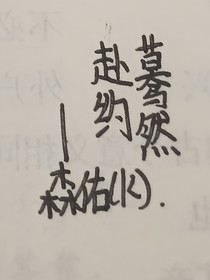 蓦然
赴约
—森佑(K).